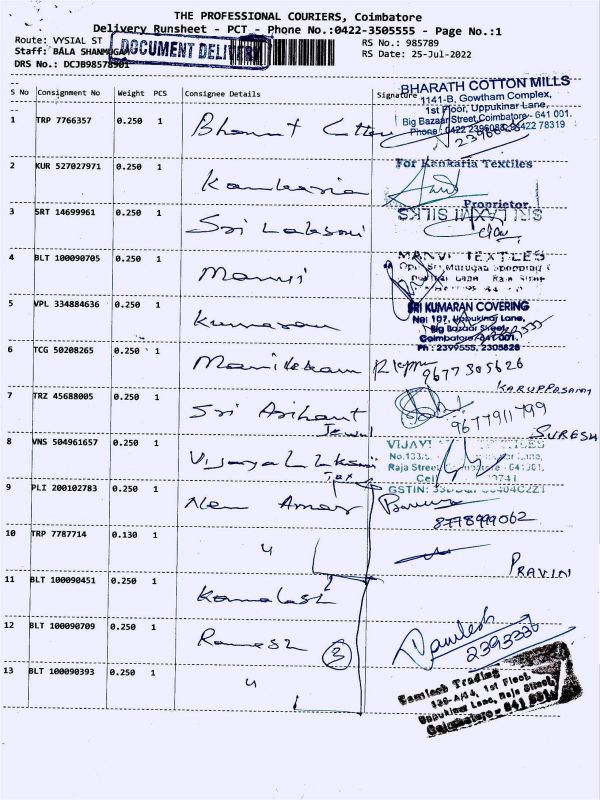 THE PROFESSIONAL COURIERS, Coimbatore
Delivery Runsheet - PCT - Phone No.:0422-3505555 - Page No.:1
Route: VYSIAL ST
RS No.: 985789
Staff: BALA SHANMUGAM
DOCUMENT DELIVERY
RS Date: 25-Jul-2022
DRS No.: DCJB98578901
S No Consignment No Weight PCS Consignee Details Signature
BHARATH COTTON MILLS
1141-B, Gowtham Complex,
1st Floor, Uppukinar Lane,
Big Bazaar Street, Coimbatore - 641 001.
Phone: 0422 2396083, 98422 78319
1 TRP 7766357 0.250 1 Bharat Cotton
2 KUR 527027971 0.250 1 Kankaria
For Kankaria Textiles
Proprietor.
3 SRT 14699961 0.250 1 Sri Laksmi
SRI LAXMI SILKS
4 BLT 100090705 0.250 1 Manvi
MANVI TEXTILES
5 VPL 334884636 0.250 1 Kumaran
SRI KUMARAN COVERING
No: 107, Uppukinar Lane,
Big Bazaar Street,
Coimbatore - 641 001.
Ph : 2399555, 2305828
6 TCG 50208265 0.250 1 Manikkam
9677305626
KARUPPASAMY
7 TRZ 45688005 0.250 1 Sri Arihant
Jewel
9677911799
SURESH
8 VNS 504961657 0.250 1 Vijaya Lakshmi
Tex
No.133/
Raja Street
9 PLI 200102783 0.250 1 New Amar
8778999062
10 TRP 7787714 0.130 1 "
PRAVIN
11 BLT 100090451 0.250 1 Kamalesh
12 BLT 100090709 0.250 1 Ramesh
3
Kamlesh
2393330
13 BLT 100090393 0.250 1 "
Camlesh Trading
1st Floor,
Uppukinar Lane, Raja Street,
Coimbatore - 641 001